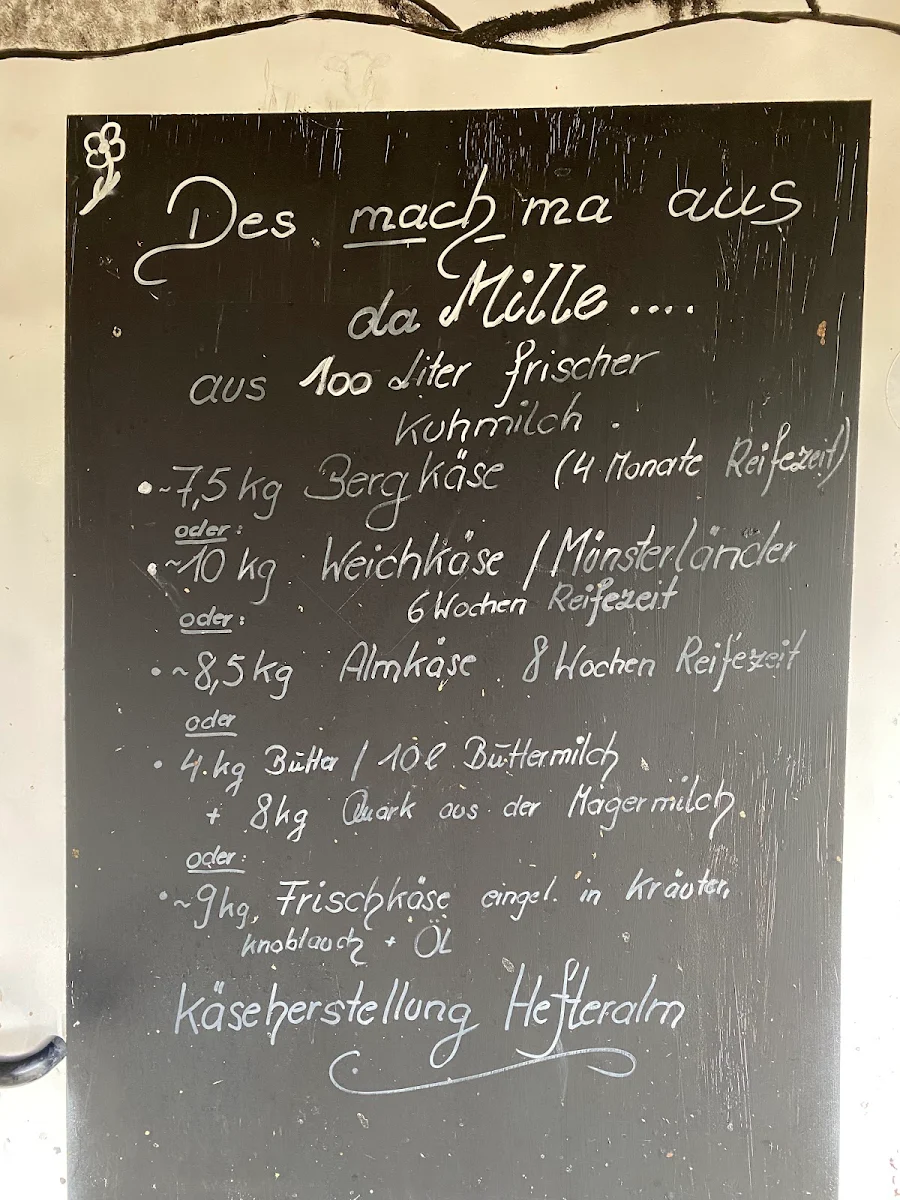 Des mach ma aus
da Mille ....
aus 100 Liter frischer
Kuhmilch .
• ~7,5 kg Bergkäse (4 Monate Reifezeit)
oder:
• ~10 kg Weichkäse / Münsterländer
6 Wochen Reifezeit
oder:
• ~8,5 kg Almkäse 8 Wochen Reifezeit
oder
• 4 kg Butter / 10 l Buttermilch
+ 8 kg Quark aus der Magermilch
oder:
• ~9 kg Frischkäse eingel. in Kräuter,
Knoblauch + Öl
Käseherstellung Hefteralm